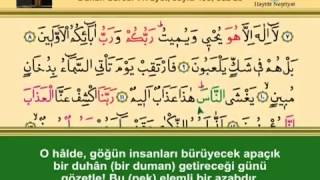 Hayrât Neşriyat
لَٓا اِلٰهَ اِلَّا هُوَ يُحْي۪ي وَيُم۪يتُ رَبُّكُمْ وَرَبُّ اٰبَٓائِكُمُ الْاَوَّل۪ينَ
بَلْ هُمْ ف۪ي شَكٍّ يَلْعَبُونَ فَارْتَقِبْ يَوْمَ تَأْتِي السَّمَٓاءُ بِدُخَانٍ
مُب۪ينٍ يَغْشَى النَّاسَ هٰذَا عَذَابٌ اَل۪يمٌ رَبَّنَا اكْشِفْ عَنَّا الْعَذَابَ
O hâlde, göğün insanları bürüyecek apaçık
bir duhân (bir duman) getireceği günü
gözetle! Bu (pek) elemli bir azabdır.